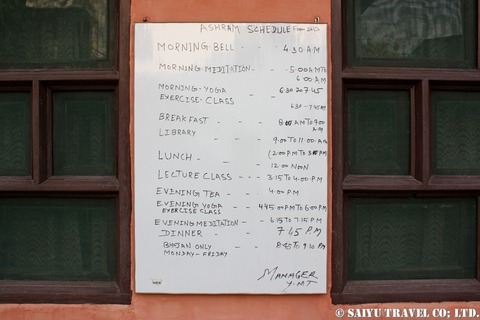 ASHRAM SCHEDULE
MORNING BELL - - - 4.30 A.M
MORNING MEDITATION - - 5.00 AM TO
6.00 AM
MORNING-YOGA - - 6.30 TO 7.45
EXERCISE-CLASS
6.30 - 7.45 AM
BREAKFAST - - - 8.00 AM TO 9.00
A.M
LIBRARY - - -
9.00 TO 11.00 AM
(2.00 PM TO 3 PM)
LUNCH - - - 12.00 NOON
LECTURE CLASS - - - 3.15 TO 4.00 P.M
EVENING TEA - - 4.00 PM
EVENING YOGA - - 4.45.00 PM TO 6.00 PM
EXERCISE CLASS
EVENING MEDITATION - - 6.15 TO 7.15 PM
DINNER - - 7.45 PM
BHAJAN ONLY - - 8.45 TO 9.30 PM
MONDAY - FRIDAY
MANAGER
Y.MT
© SAIYU TRAVEL CO; LTD.